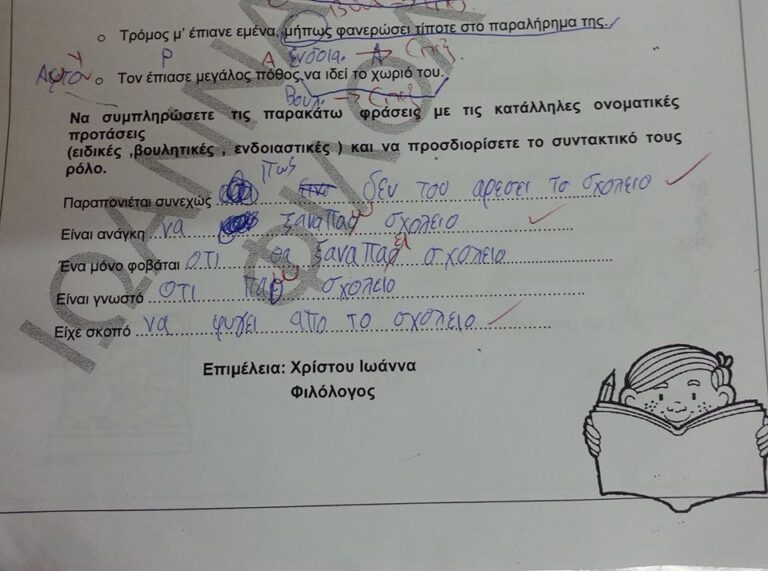 Βουλ. → Επεξ.
Τρόμος μ' έπιανε εμένα, μήπως φανερώσει τίποτε στο παραλήρημα της.
Ρ Α Ενδοια. → Επεξ. Α
Τον έπιασε μεγάλος πόθος να ιδεί το χωριό του.
Βουλ. → Επεξ.
Να συμπληρώσετε τις παρακάτω φράσεις με τις κατάλληλες ονοματικές
προτάσεις
(ειδικές ,βουλητικές , ενδοιαστικές ) και να προσδιορίσετε το συντακτικό τους
ρόλο.
Παραπονιέται συνεχώς πως δεν του αρεσει το σχολειο
Είναι ανάγκη να ξαναπαω σχολειο
Ένα μόνο φοβάται οτι θα ξαναπαει σχολειο
Είναι γνωστό οτι παω σχολειο
Είχε σκοπό να φυγει απο το σχολειο
Επιμέλεια: Χρίστου Ιωάννα
Φιλόλογος